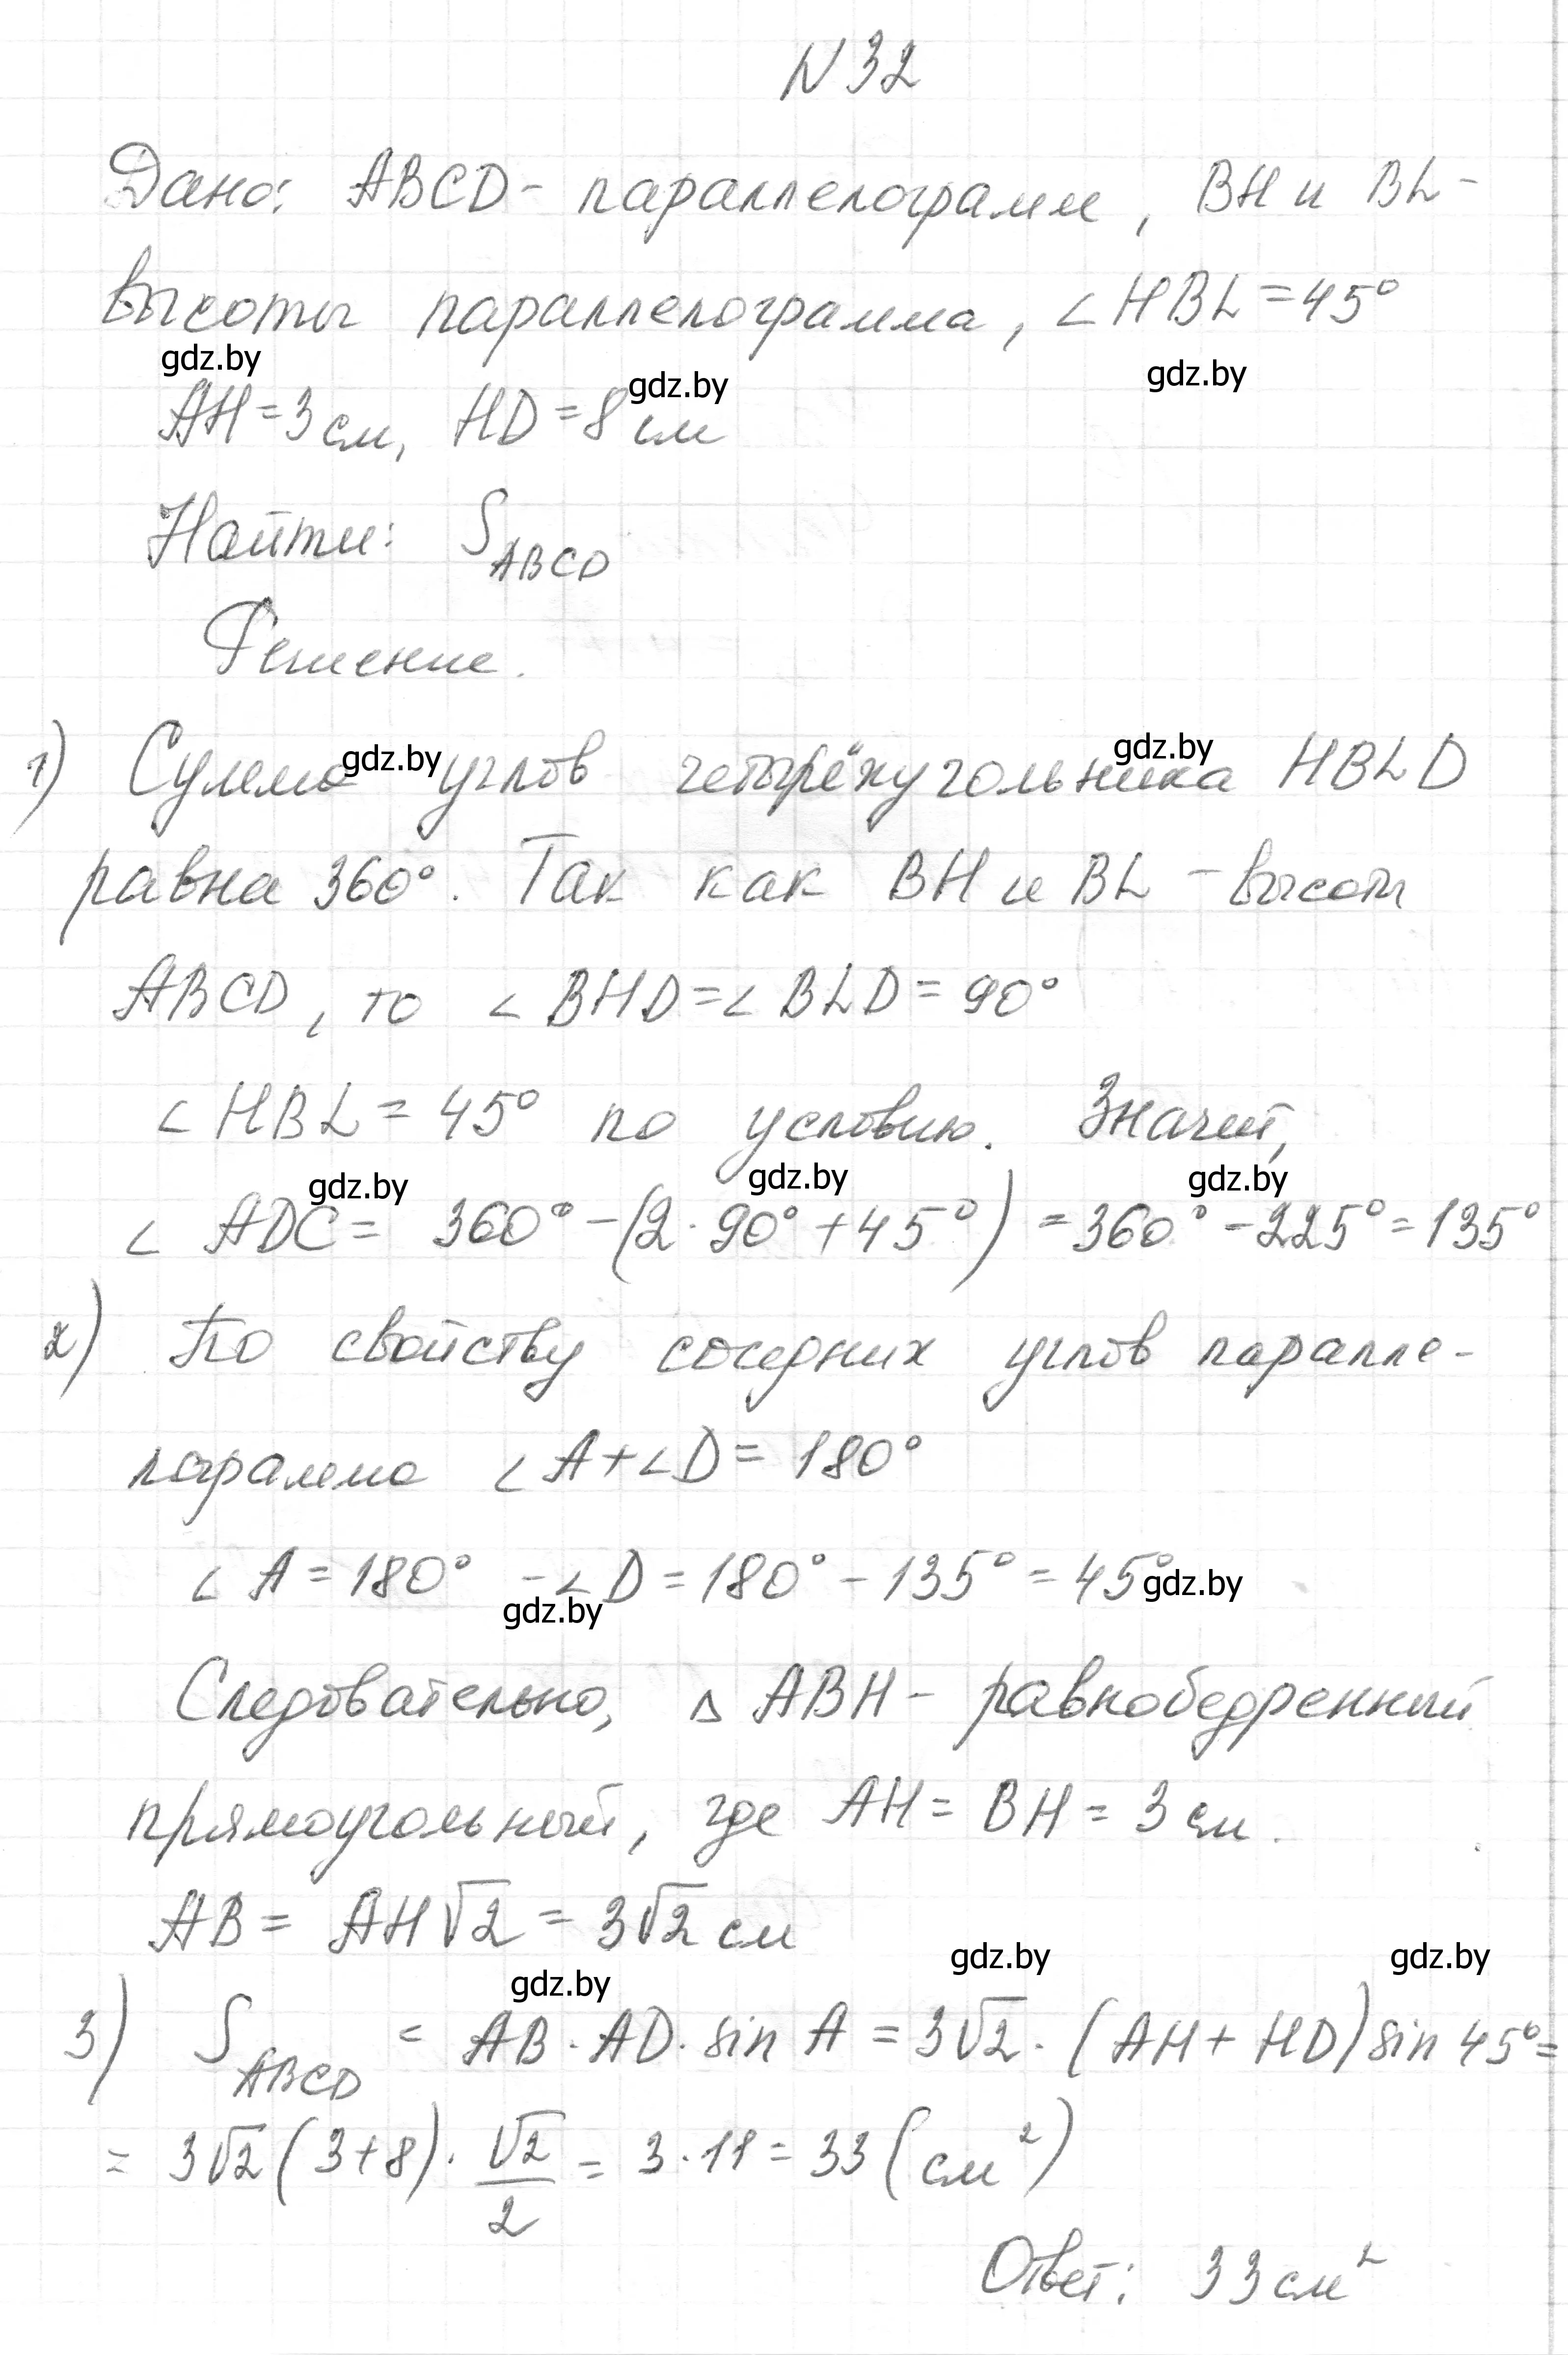 N 32
Дано: ABCD - параллелограмм, BH и BL -
высоты параллелограмма, ∠HBL = 45°
gdz.by gdz.by gdz.by
AH = 3 см, HD = 8 см
Найти: S_ABCD
Решение.
gdz.by gdz.by
1) Сумма углов четырёхугольника HBLD
равна 360°. Так как BH и BL - высоты
ABCD, то ∠BHD = ∠BLD = 90°
∠HBL = 45° по условию. Значит,
gdz.by gdz.by gdz.by
∠ADC = 360° - (2 · 90° + 45°) = 360° - 225° = 135°
2) По свойству соседних углов паралле-
лограмма ∠A + ∠D = 180°
∠A = 180° - ∠D = 180° - 135° = 45° gdz.by
gdz.by
Следовательно, △ABH - равнобедренный
прямоугольный, где AH = BH = 3 см.
AB = AH√2 = 3√2 см
gdz.by gdz.by gdz.by
3) S_ABCD = AB · AD · sin A = 3√2 · (AH + HD) sin 45° =
= 3√2 (3 + 8) · √2/2 = 3 · 11 = 33 (см²)
Ответ: 33 см²